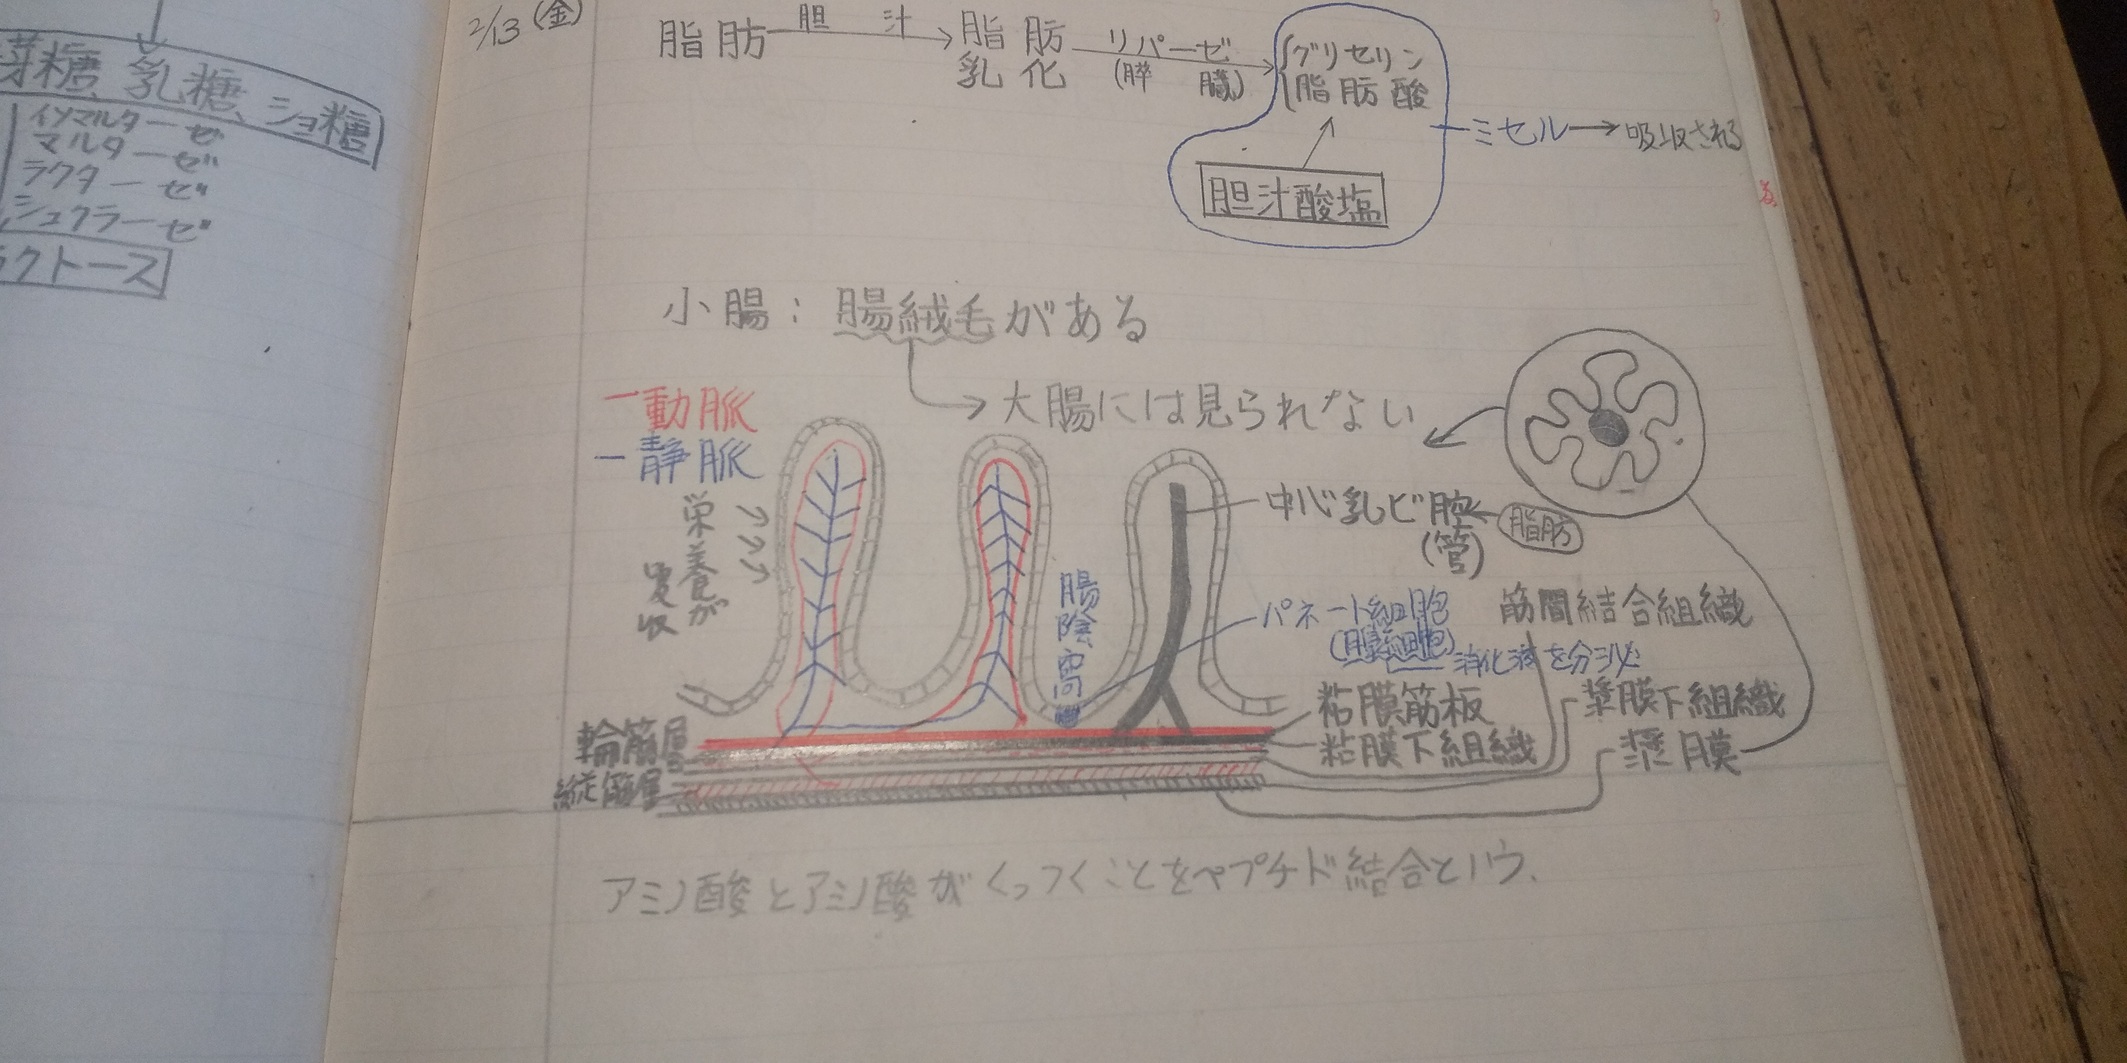 芽糖、乳糖、ショ糖
イソマルターゼ
マルターゼ
ラクターゼ
シュクラーゼ
ラクトース
2/13(金)
脂肪 胆汁 脂肪乳化 リパーゼ(膵臓) グリセリン
脂肪酸
胆汁酸塩
ミセル→吸収される
小腸:腸絨毛がある
→大腸には見られない
ー動脈
ー静脈
栄養が
吸収
中心乳ビ腔
(管)
脂肪
腸陰窩
パネート細胞
消化液を分泌
筋間結合組織
粘膜筋板
粘膜下組織
漿膜下組織
漿膜
輪筋層
縦筋層
アミノ酸とアミノ酸がくっつくことをペプチド結合という.